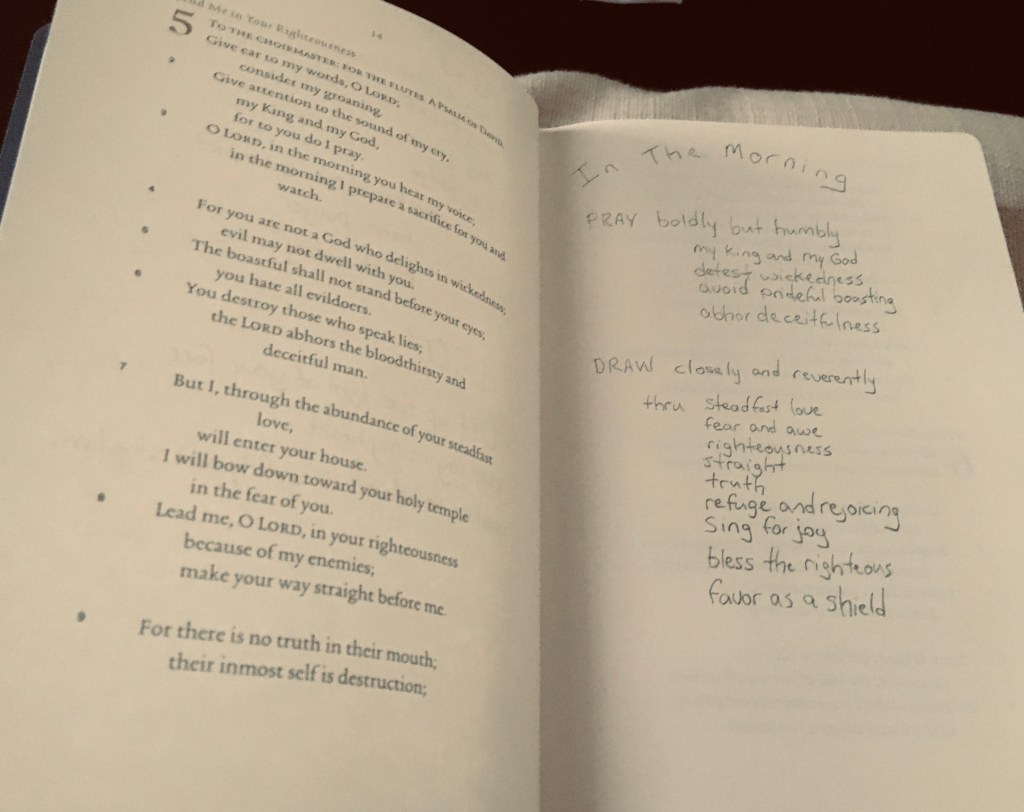 Me in Your Righteousness 14
5 TO THE CHOIRMASTER: FOR THE FLUTES. A PSALM OF DAVID.
Give ear to my words, O LORD;
consider my groaning.
2 Give attention to the sound of my cry,
my King and my God,
for to you do I pray.
3 O LORD, in the morning you hear my voice;
in the morning I prepare a sacrifice for you and
watch.
4 For you are not a God who delights in wickedness;
evil may not dwell with you.
5 The boastful shall not stand before your eyes;
you hate all evildoers.
6 You destroy those who speak lies;
the LORD abhors the bloodthirsty and
deceitful man.
7 But I, through the abundance of your steadfast
love,
will enter your house.
I will bow down toward your holy temple
in the fear of you.
8 Lead me, O LORD, in your righteousness
because of my enemies;
make your way straight before me.
9 For there is no truth in their mouth;
their inmost self is destruction;
In The Morning
PRAY boldly but humbly
my King and my God
detest wickedness
avoid prideful boasting
abhor deceitfulness
DRAW closely and reverently
thru steadfast love
fear and awe
righteousness
straight
truth
refuge and rejoicing
Sing for joy
bless the righteous
favor as a shield